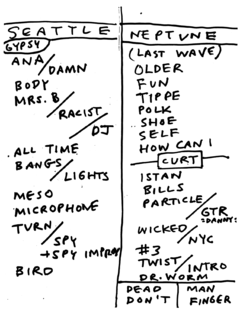 SEATTLE
GYPSY
ANA/
DAMN
BODY
MRS. B
/RACIST
/DJ
ALL TIME
BANGS/
LIGHTS
MESO
MICROPHONE
TURN/
SPY
→SPY IMPROV
BIRD
NEPTUNE
(LAST WAVE)
OLDER
FUN
TIPPE
POLK
SHOE
SELF
HOW CAN I
CURT
ISTAN
BILLS
PARTICLE/
GTR
=DANNY=
WICKED/
NYC
#3
TWIST/INTRO
DR. WORM
DEAD
DON'T
MAN
FINGER